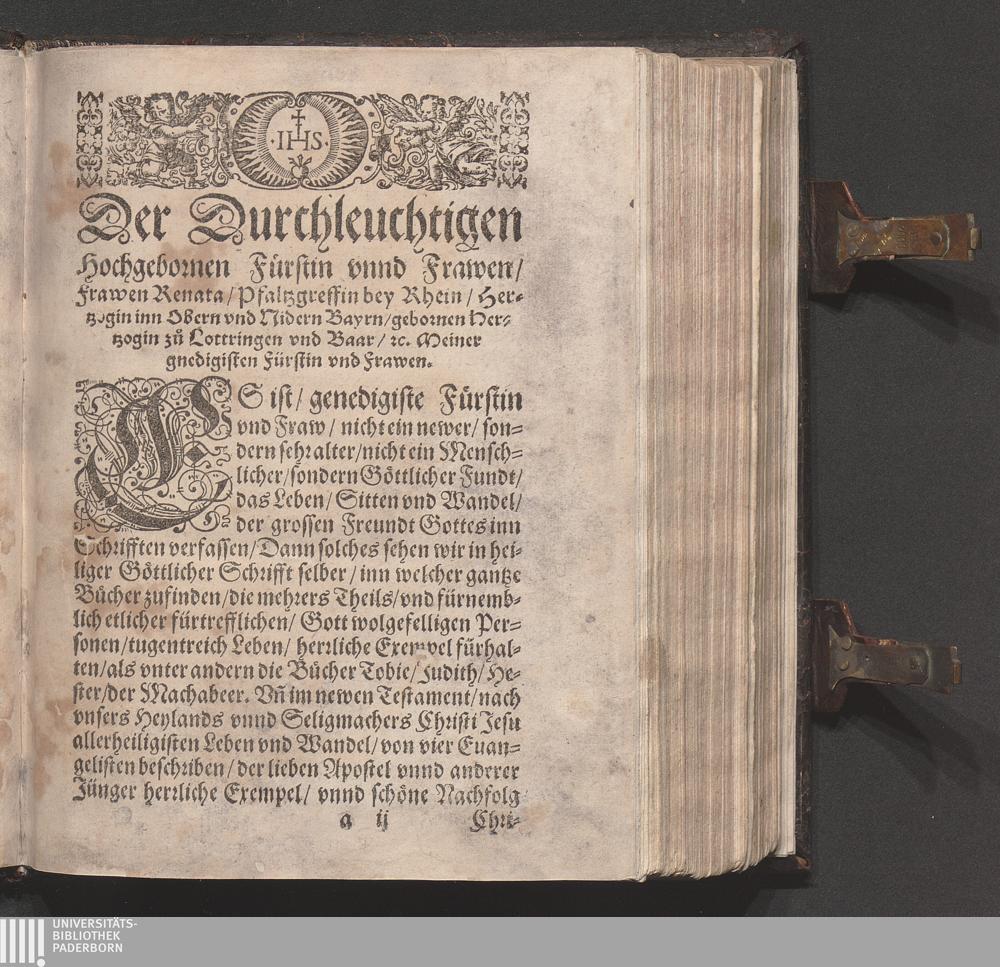 ·IHS·
Der Durchleuchtigen
Hochgebornen Fürstin vnnd Frawen/
Frawen Renata/ Pfaltzgreffin bey Rhein/ Her-
tzogin inn Obern vnd Nidern Bayrn/ gebornen Her-
tzogin zů Lottringen vnd Baar/ ꝛc. Meiner
gnedigisten Fürstin vnd Frawen.
ES ist/ genedigiste Fürstin
vnd Fraw/ nicht ein newer/ son-
dern sehr alter/ nicht ein Mensch-
licher/ sondern Göttlicher Fundt/
das Leben/ Sitten vnd Wandel/
der grossen Freundt Gottes inn
Schrifften verfassen/ Dann solches sehen wir in hei-
liger Göttlicher Schrifft selber/ inn welcher gantze
Bücher zufinden/ die mehrers Theils/ vnd fürnemb-
lich etlicher fürtrefflichen/ Gott wolgefelligen Per-
sonen/ tugentreich Leben/ herrliche Exempel fürhal-
ten/ als vnter andern die Bücher Tobie/ Judith/ He-
ster/ der Machabeer. Vñ im newen Testament/ nach
vnsers Heylands vnnd Seligmachers Christi Jesu
allerheiligisten Leben vnd Wandel/ von vier Euan-
gelisten beschriben/ der lieben Apostel vnnd anderer
Jünger herrliche Exempel/ vnnd schöne Nachfolg
a ij Chri-
UNIVERSITÄTS-
BIBLIOTHEK
PADERBORN